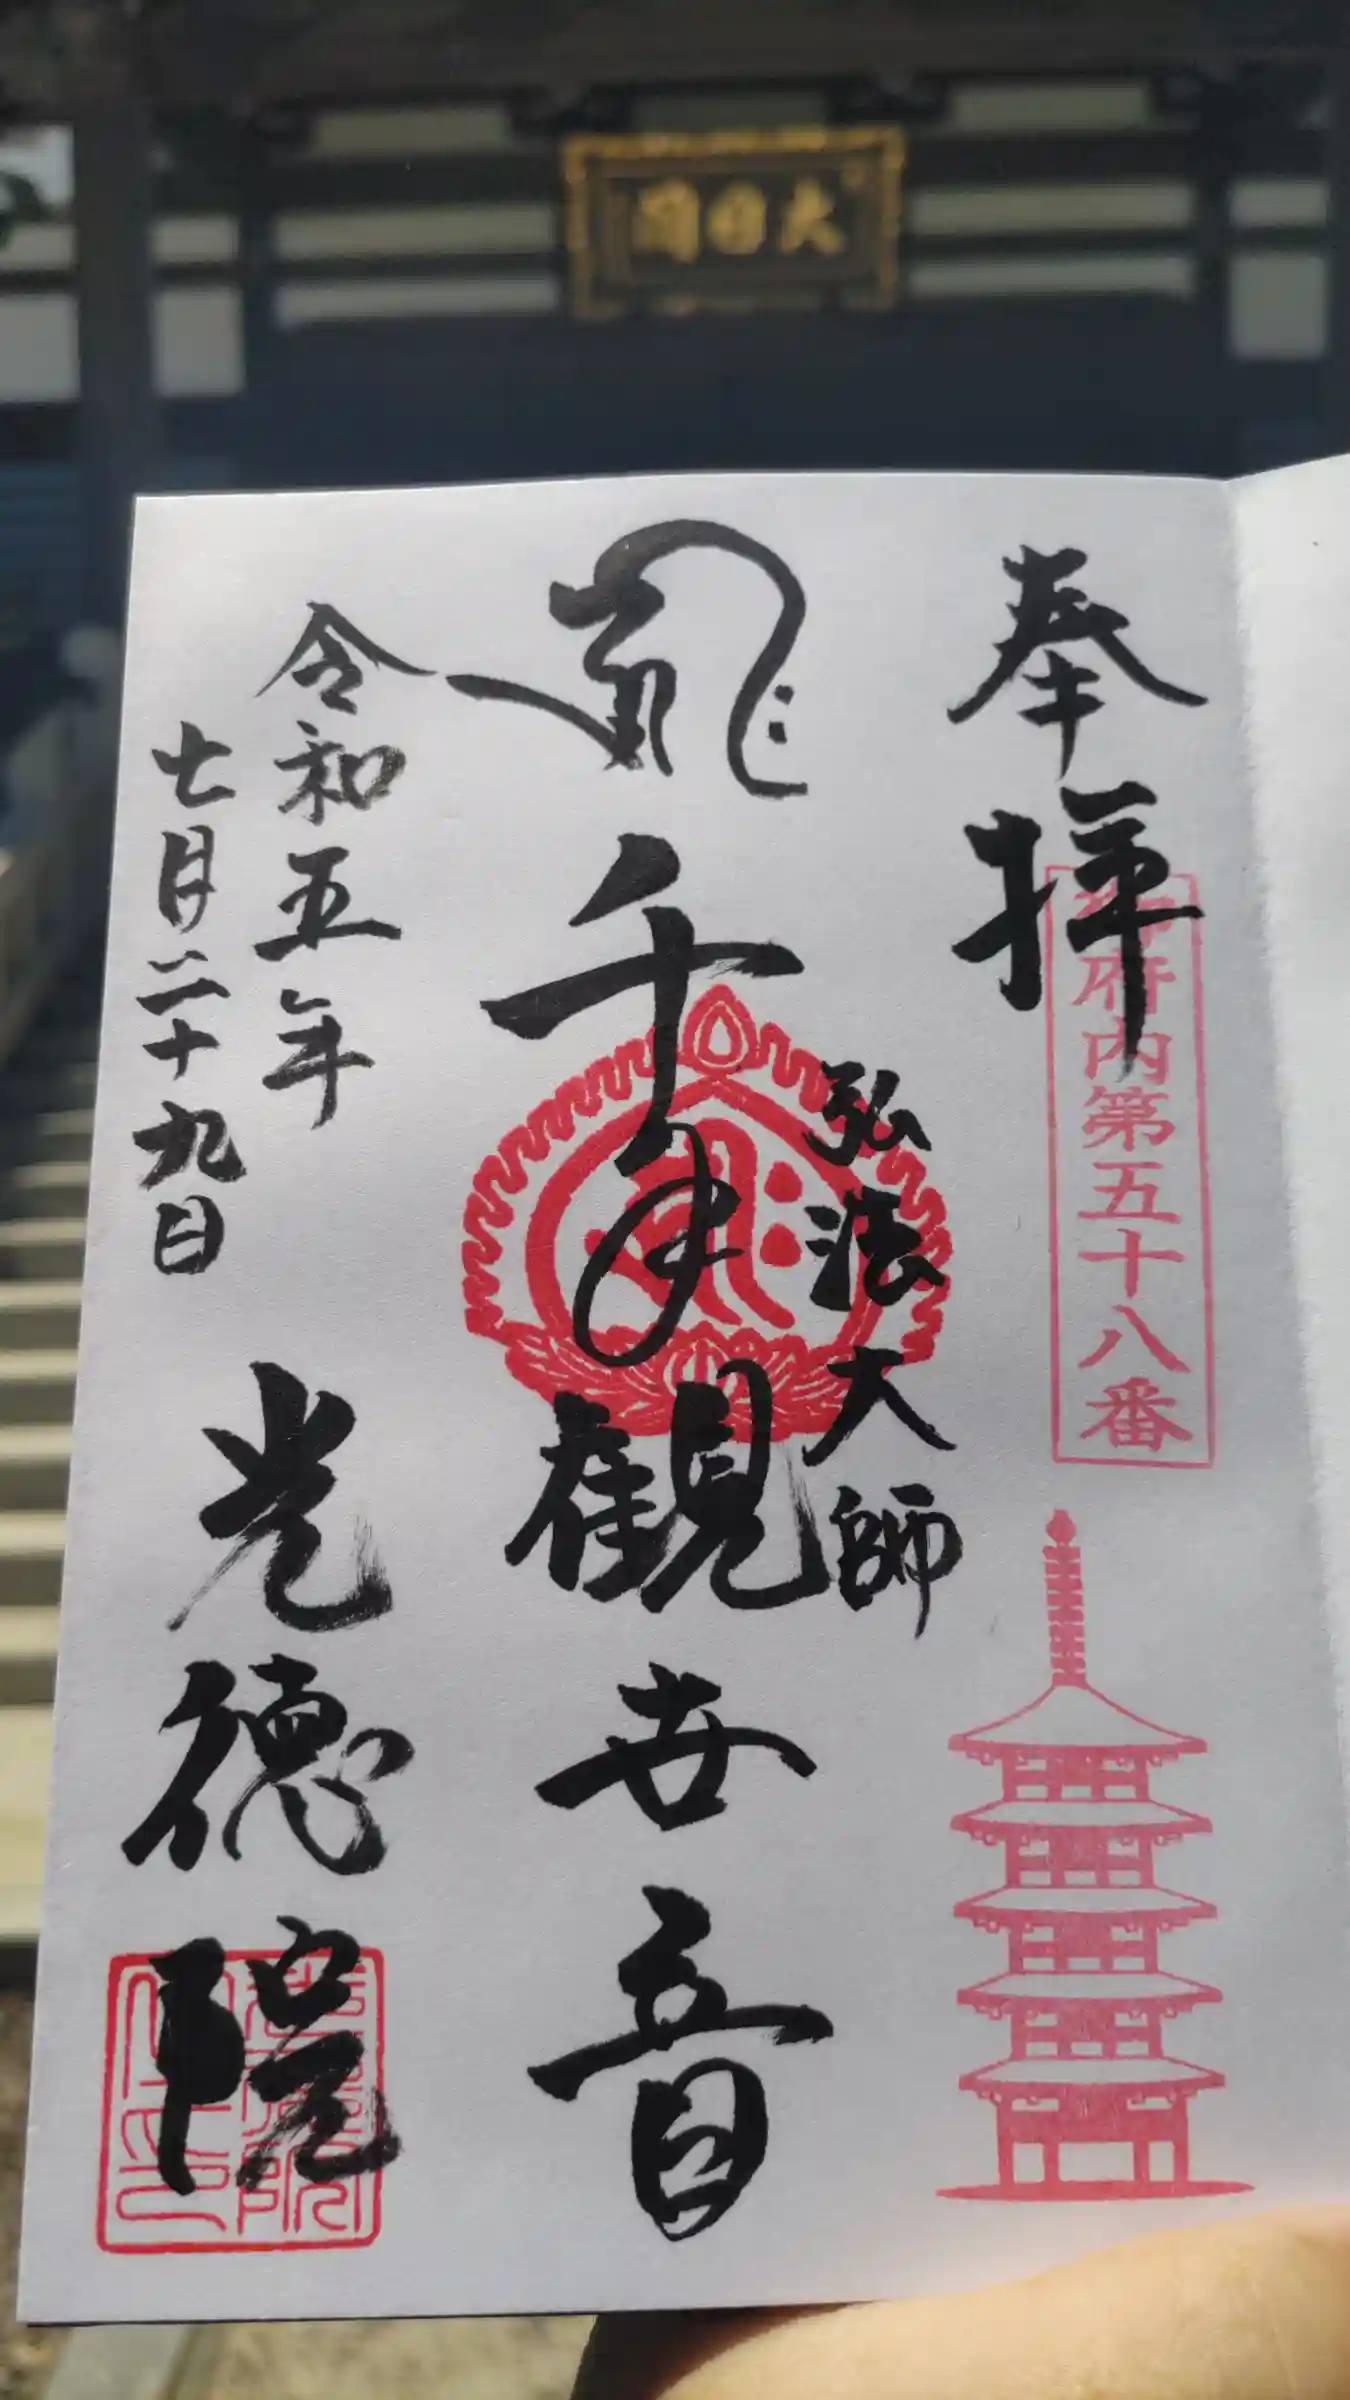 大日閣
奉拝
府内第五十八番
弘法大師
千手観世音
令和五年
七月二十九日
光徳院